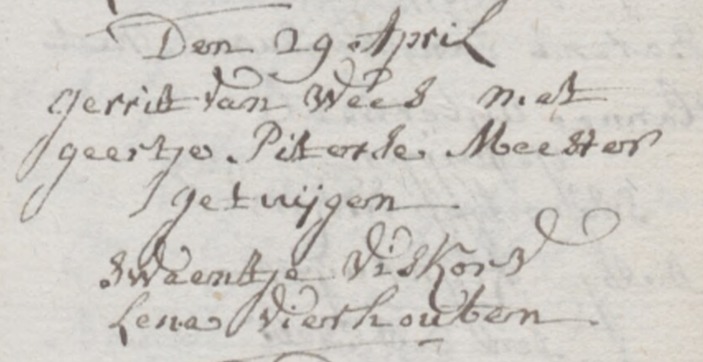 Den 29 April
gerrit van Wees met
geertje Piterse Meester
getuijgen
swaentje Viskorf
Lena Vierhouten